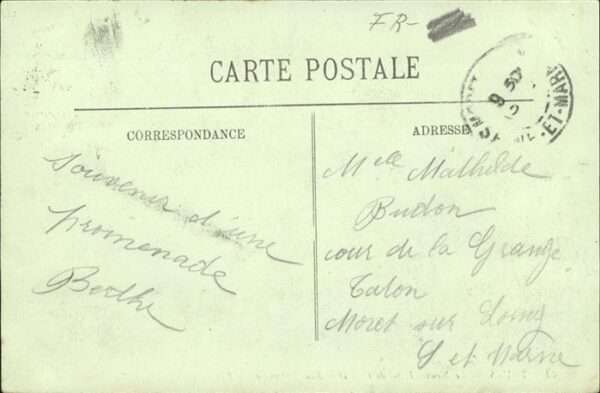 FR-
CARTE POSTALE
CORRESPONDANCE
ADRESSE
Souvenir d'une
promenade
Berthe
Melle Mathilde
Budon
cour de la Grange
Talon
Moret sur Loing
S et Marne
9
ET-MAR